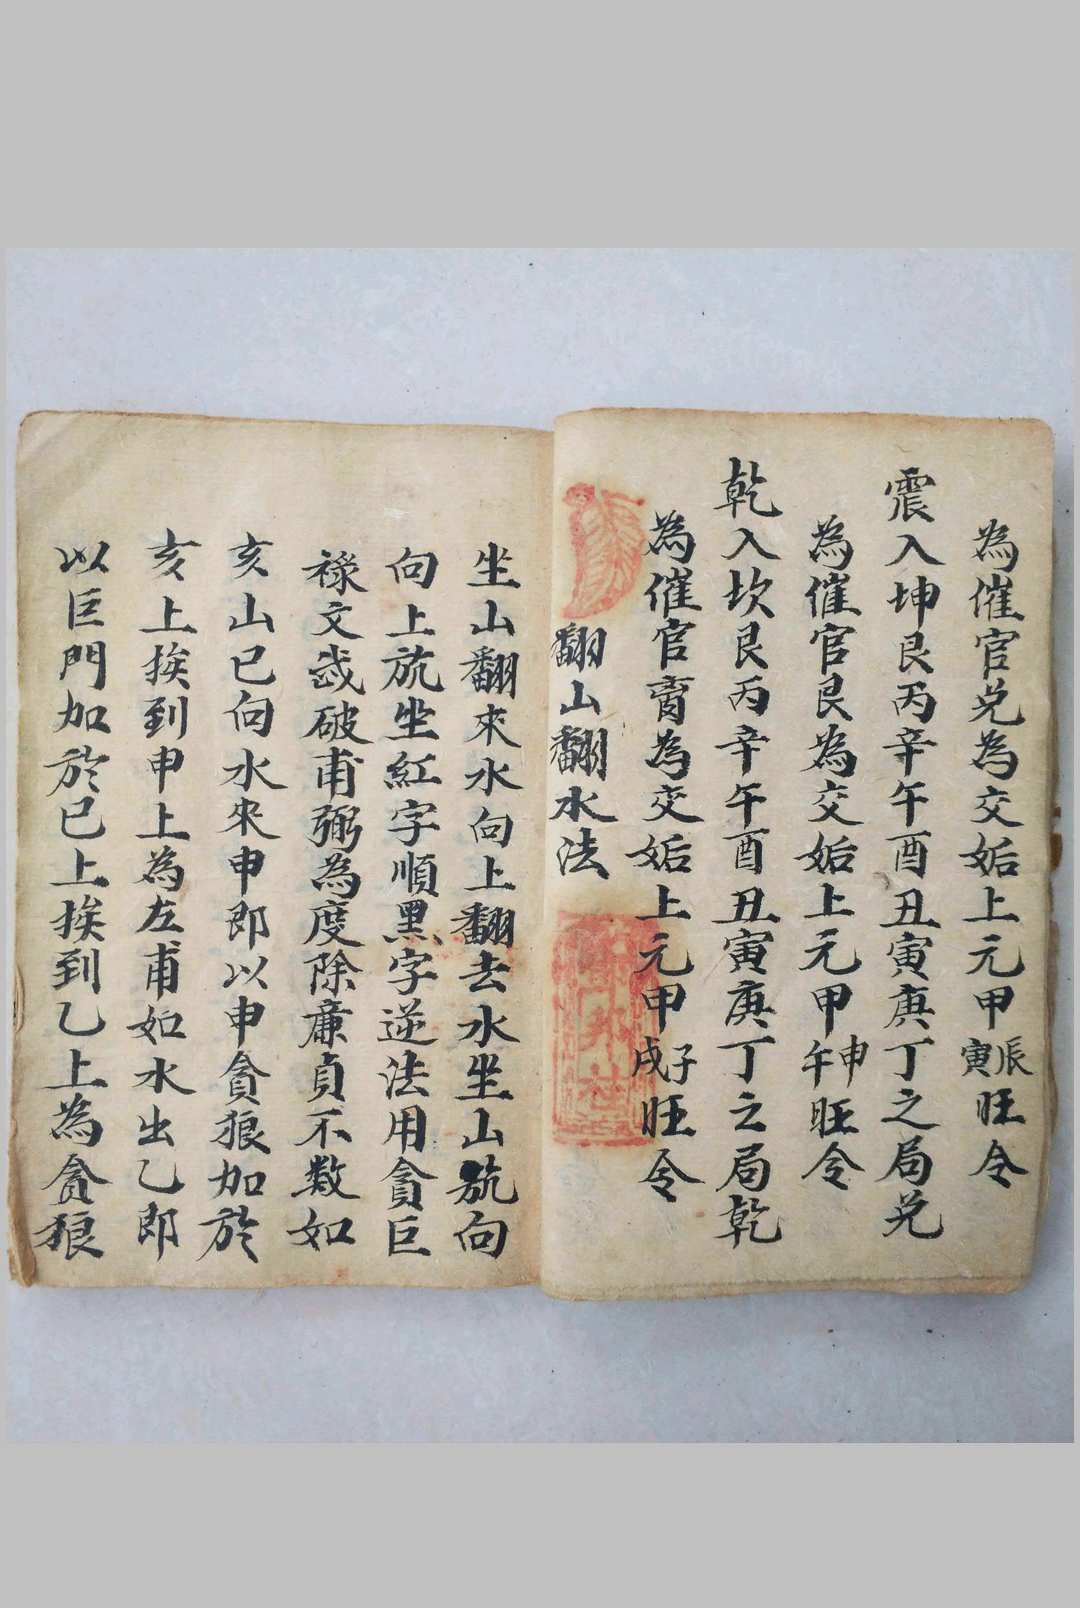 為催官兌為交姤上元甲辰寅旺令
震入坤艮丙辛午酉丑寅庚丁之局兌
為催官艮為交姤上元甲申午旺令
乾入坎艮丙辛午酉丑寅庚丁之局乾
為催官為交姤上元甲子戌旺令
翻山翻水法
坐山翻來水向上翻去水坐山旂向
向上旂坐紅字順黑字逆法用貪巨
祿文武破甫弼為度除廉貞不数如
亥山巳向水來申即以申貪狼加於
亥上挨到申上為左甫如水出乙即
以巨門加於巳上挨到乙上為貪狼